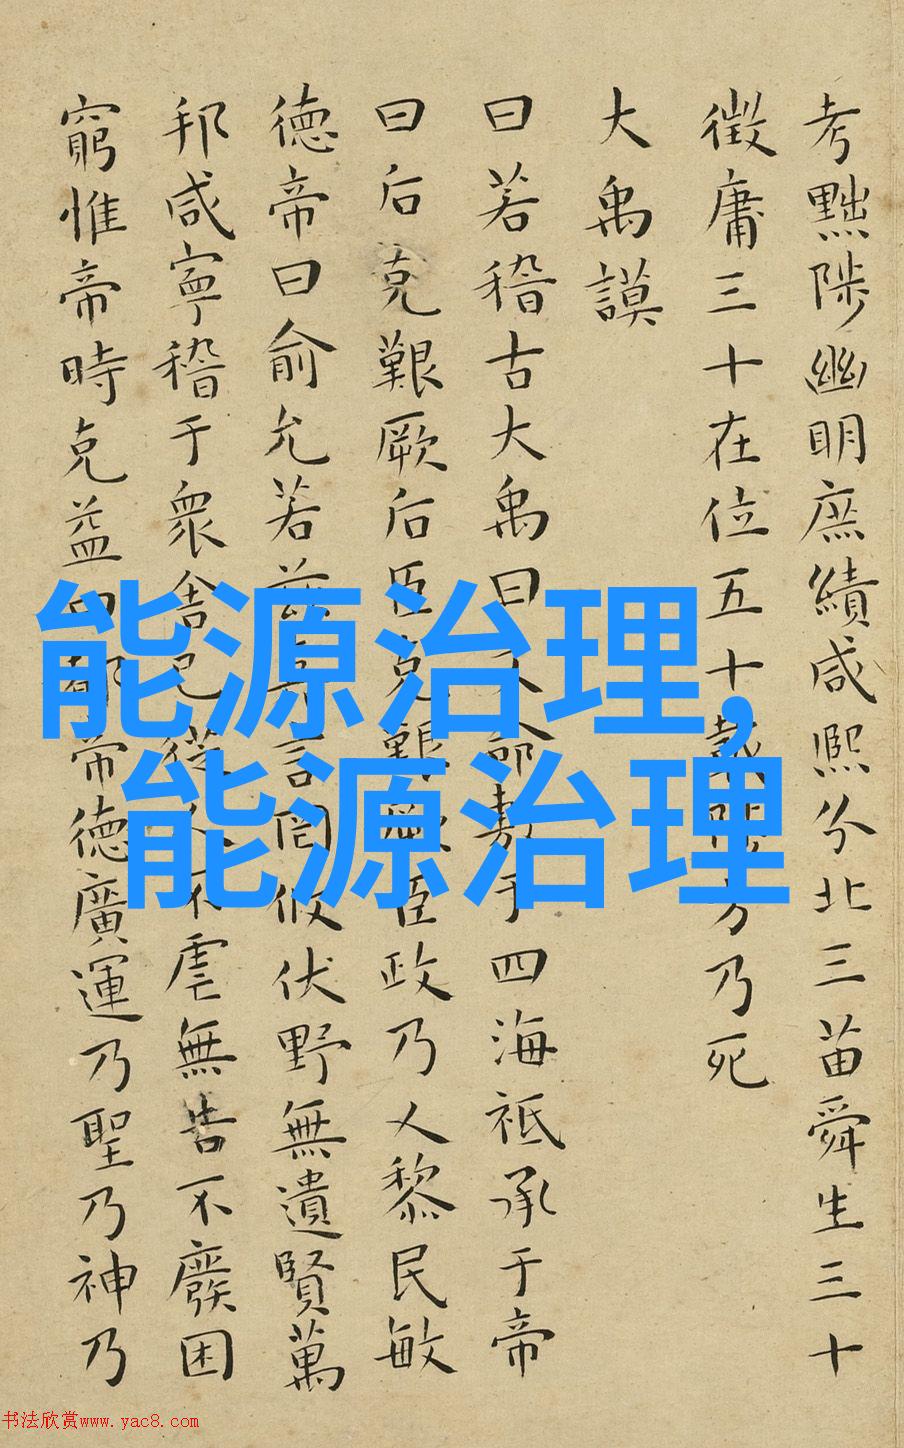 考黜陟幽明庶績咸熙分北三苗舜生三十
徵庸三十在位五十載陟方乃死
大禹謨
曰若稽古大禹曰文命敷于四海祗承于帝
曰后克艱厥后臣克艱厥臣政乃乂黎民敏
德帝曰俞允若茲嘉言罔攸伏野無遺賢萬
邦咸寧稽于衆舍己從人不虐無告不廢困
窮惟帝時克益曰都帝德廣運乃聖乃神乃
能源治理,
能源治理
书法欣赏www.yac8.com